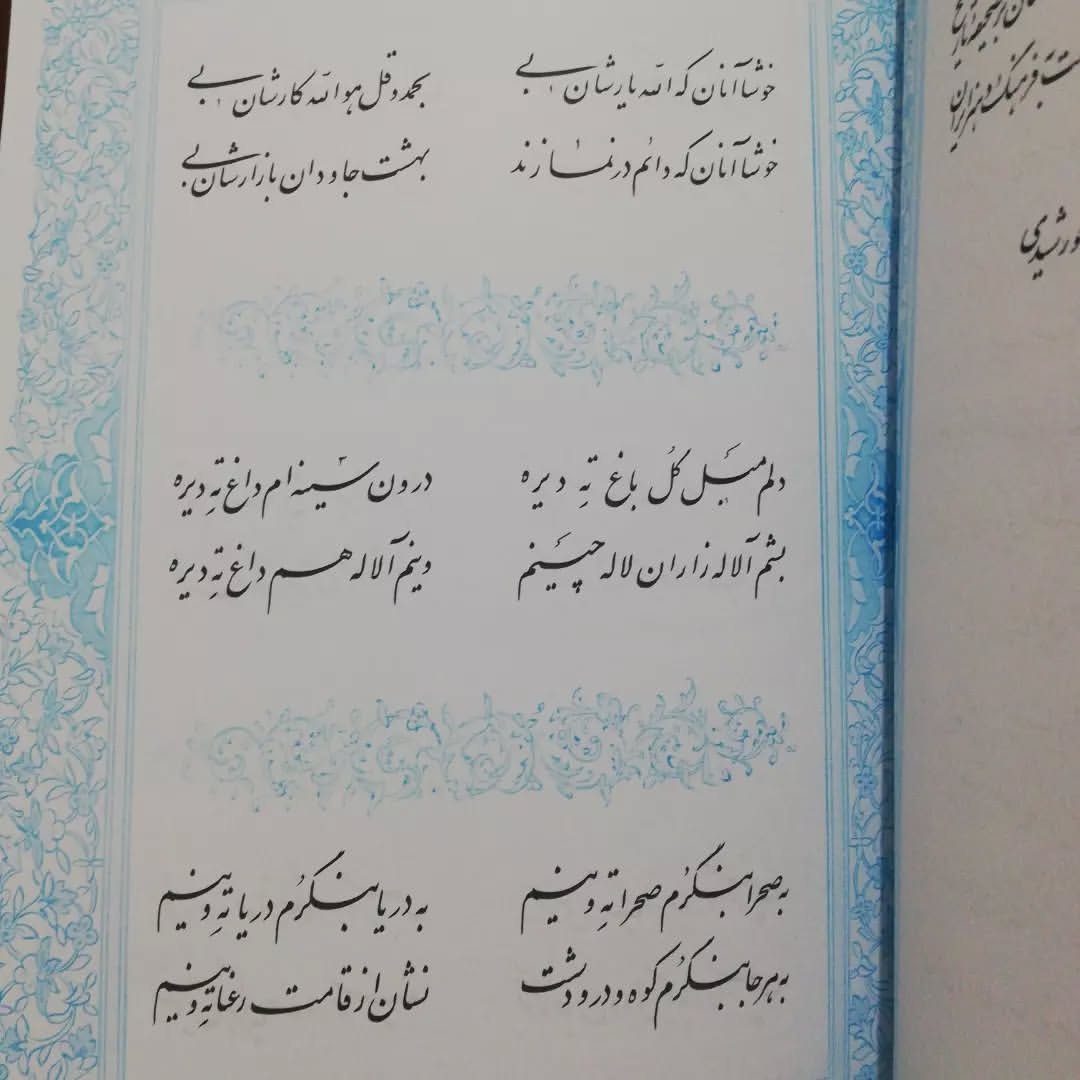 خوشا آنان که الله یارشان بی بحمد و قل هو الله کارشان بی
خوشا آنان که دائم در نمازند بهشت جاودان بازارشان بی
دلم میل گل باغ ته دیره درون سینه‌ام داغ ته دیره
بشم آلاله زاران لاله چینم وینم آلاله هم داغ ته دیره
به صحرا بنگرم صحرا ته وینم به دریا بنگرم دریا ته وینم
به هر جا بنگرم کوه و در و دشت نشان از قامت رعنا ته وینم
فرهنگ و هنر ایران